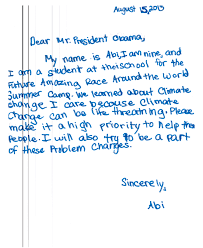 August 15, 2013
Dear Mr. President Obama,
My name is Abi, I am nine, and
I am a student at the school for the
Future Amazing Race Around the World
Summer Camp. We learned about Climate
change. I care because Climate
Change can be life threatning. Please
make it a high priority to help the
People. I will also try to be a part
of these Problem Changes.
Sincerely,
Abi